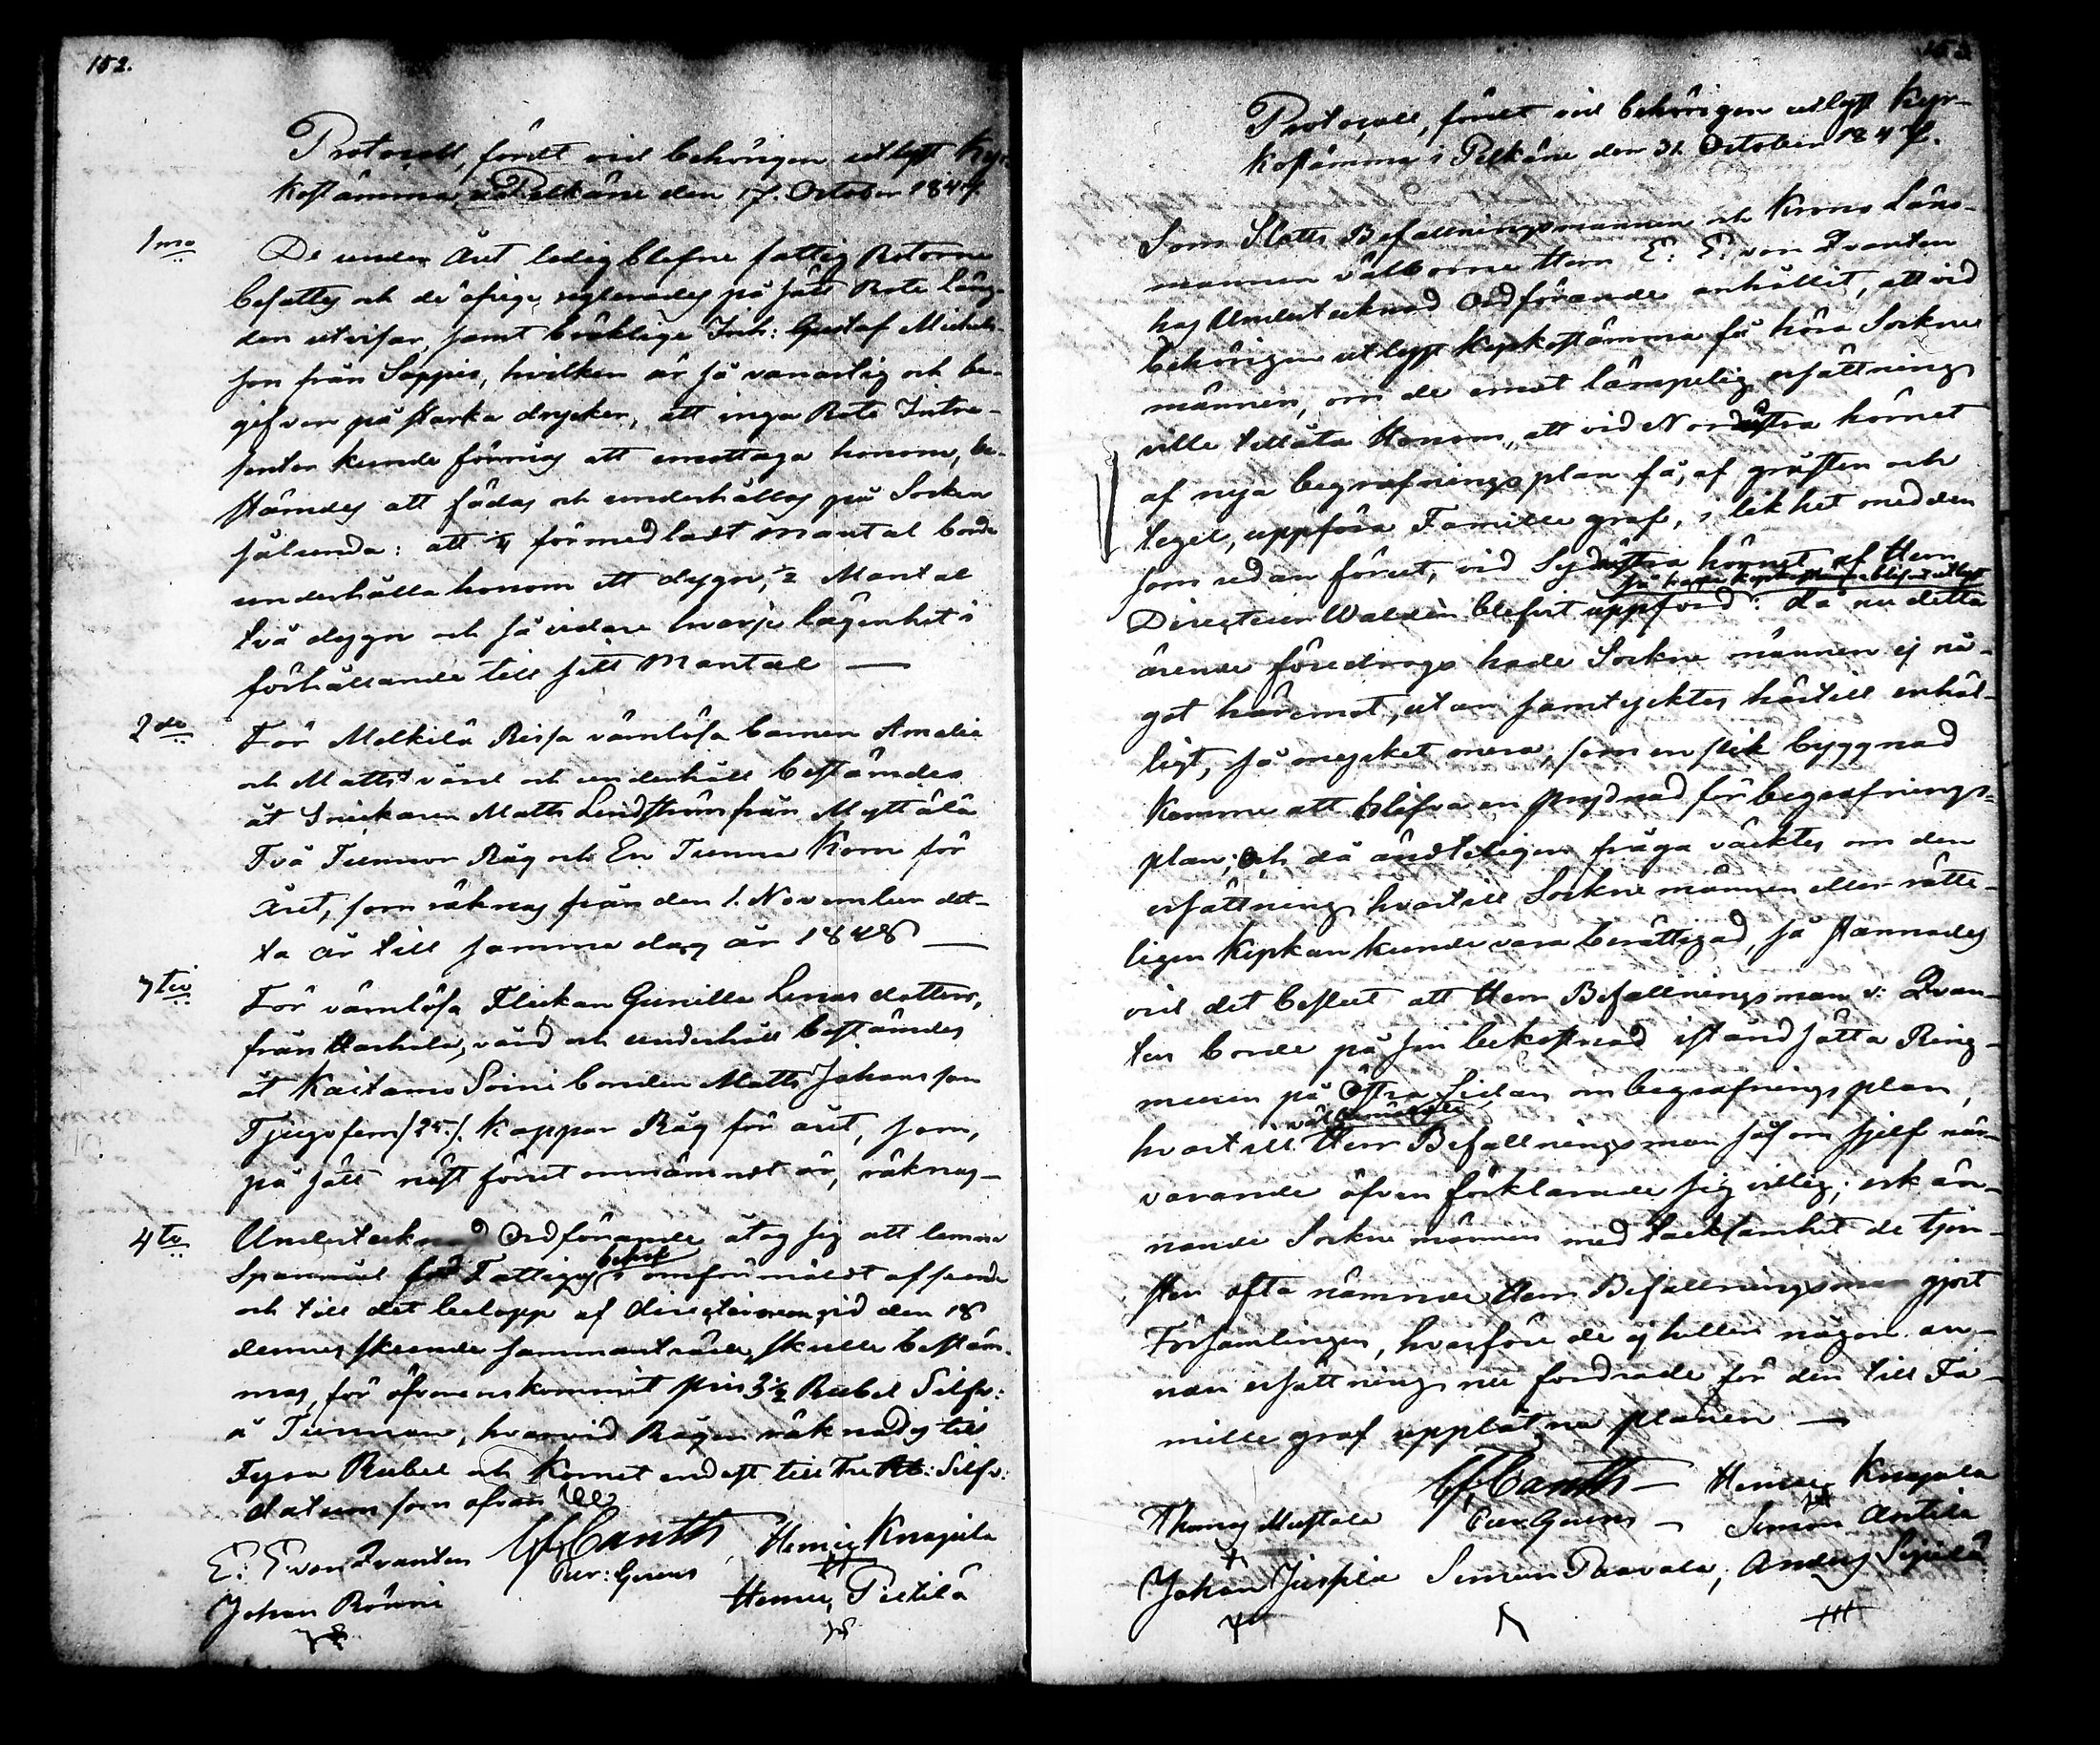 152.
Protocoll, fördt vid behörigen utlyst Kyr-
kostämma i Pelkäne den 17. October 1847.
1mo
De under Året ledig blefne fattig Rotorne
besattes och de öfrige reglerades på sätt Rote läng-
den utvisar, samt bräklige Inh: Gustaf Michels-
son från Sappis, hvilken är så vanartig och be-
gifven på starka drycker, att inga Rote Intres-
senter kunde förmås att emottaga honom, be-
stämdes att födas och underhållas på Socken
sålunda: att 1/4 förmedladt mantal borde
underhålla honom ett dygn, 1/2 Mantal
två dygn och så vidare hvarje lägenhet i
förhållande till sitt Mantal —
2do
För Melkilä Reisa värnlösa barnen Amalia
och Matts vård och underhåll bestämdes
åt Snickaren Matts Lindström från Myttälä
Två Tunnor Råg och En Tunna Korn för
Året, som räknas från den 1. November det-
ta år till samma dag år 1848 —
3tio
För värnlösa Flickan Gunilla Linas dotters,
från Harhala, vård och underhåll bestämdes
åt Kaitamo Soini bonden Matts Johansson
Tjugofem /25./. Kappar Råg för året, som,
på sätt näst förut omnämndt är, räknas —
4to
Undertecknad Ordförande åtog sig att lemna
Spanmål för Fattiges behof i omförmäldt afseende
och till det belopp af Directionen vid den 18
dennes skeende sammanträde, skulle bestäm-
mas, för öfverenskommit pris 3 1/2 Rubel Silfv:
à Tunnan, hvarvid Rågen räknades till
Fyra Rubel och Kornet endast till Tre Rb: Silfv:
datum som ofvan
E: E. von Qvanten G. F. Canth Henric Knapila
Johan Röuni Per: Henric Pietilä
Protocoll, fördt vid behörigen utlyst Kyr-
kostämma i Pelkäne den 31. October 1847.
Som Slotts Befallningsmannen och Krono Läns-
mannen välborne Herr E: E. von Qvanten
has Undertecknad Ordförande anhållit, att vid
behörigen utlyst Kyrkostämma få höra Sockne
männen, om de emot lämpelig ersättning
ville tillåta Honom, att vid Nordöstra hörnet
af nya begrafningsplan få, af gråsten och
tegel, uppföra Famille graf, i likhet med den
som redan förut, vid Sydöstra hörnet af Herr
Directeur Waldén blifvit uppförd: då nu detta
ärende föredrogs hade Sockne männen ej nå-
got häremot, utan samtycktes härtill enhäl-
ligt, så mycket mera, som en slik byggnad
komme att blifva en prydnad för begrafnings-
plan; Och då ändteligen fråga väcktes om den
ersättning hvartill Sockne männen eller rätte-
ligen Kyrkan kunde vara berättigad, så stannades
vid det beslut att Herr Befallningsman v: Qvan-
ten borde på sin bekostnad iståndsätta Ring-
muren på Östra Sidan om begrafningsplan,
hvartill välbemälte Herr Befallningsman såsom sjelf när-
varande äfven förklarade sig villig; erkän-
nande Sockne männen med tacksamhet de tjen-
ster ofta nämnde Herr Befallningsman gjort
Församlingen, hvarföre de ej heller någon an-
nan ersättning nu fordrade för den till Fa-
mille graf upplåtna planen —
G. F. Canth — Henric Knapila
Thomas Mustala Per — Simon Anttila
Johan Juspila Simon Paavola, Anders Sipilä